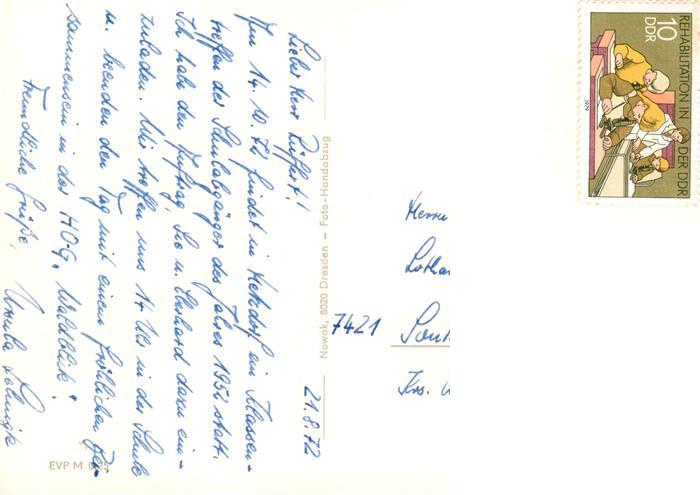 21.8.72
Lieber Herr Rüffart!
Am 14.10.72 findet in Hetzdorf ein Klassen-
treffen der Schulabgänger des Jahres 1952 statt.
Ich habe den Auftrag, Sie u. Eberhard dazu ein-
zuladen. Wir treffen uns 14 Uhr in der Schule
u. beenden den Tag mit einem fröhlichen Bei-
sammensein in der HOG „Waldblick".
Freundliche Grüße,
Ursula
Nowak, 8020 Dresden — Foto-Handabzug
EVP M 0,25
Herrn
Lothar
7421
Krs.
10
DDR
REHABILITATION IN DER DDR
1979